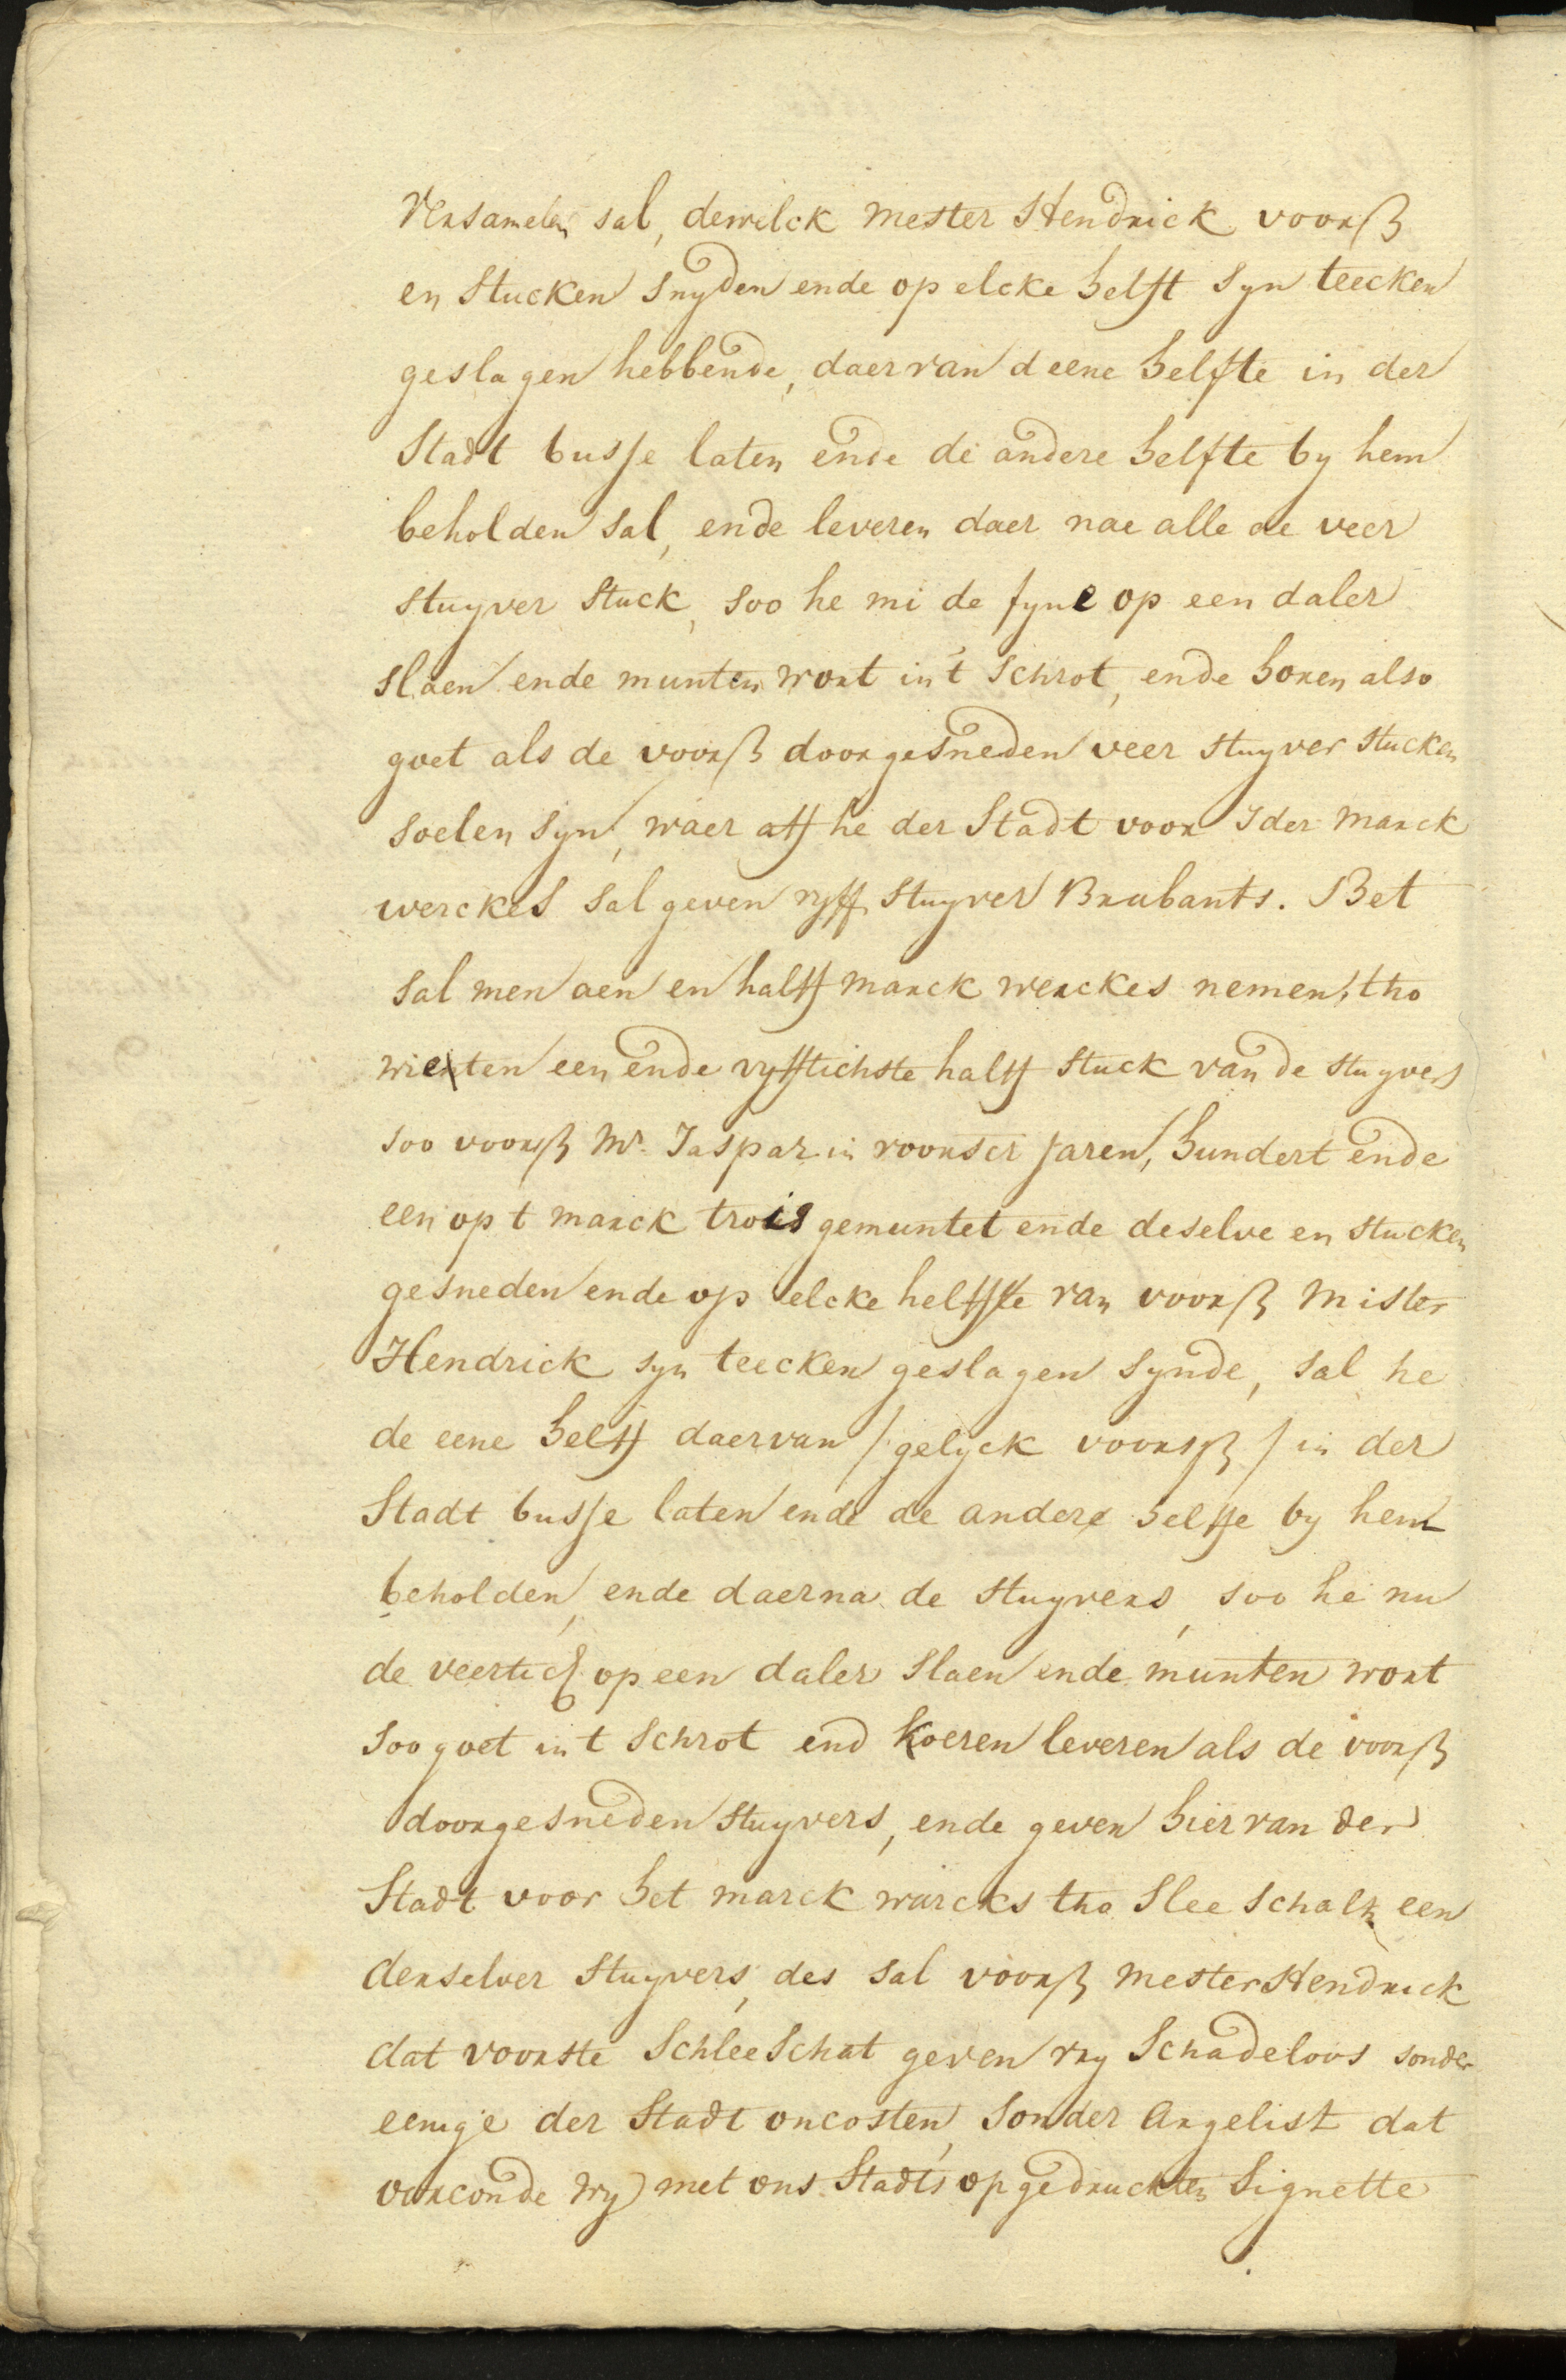 Versamelen sal, dewelck mester Hendrick voorß
en stucken snyden ende op elcke helft syn teecken
geslagen hebbende, daervan d eene helfte in der
Stadt busse laten ende de andere helfte by hem
beholden sal, ende leveren daer nae alle de veer
stuyver stuck, soo he mi de fyne op een daler
slaen ende munten wort in 't schrot, ende horen also
goet als de voorß doorgesneden veer stuyver stucken
soelen syn, waer aff he der Stadt voor Ider marck
werckes sal geven vyff stuyver Brabants. Bet
sal men aen en halff marck werckes nemen, tho
wieten een ende vyfftichste halff stuck van de stuyvers
soo voorß Mr. Jaspar in voorser jaren, hundert ende
een op t marck trois gemuntet ende deselve en stucken
gesneden ende op elcke helffte van voorß Mister
Hendrick syn teecken geslagen synde, sal he
de eene helff daervan / gelyck voorsß / in der
Stadt busse laten ende de andere helffe by hem
beholden, ende daerna de stuyvers, soo he nu
de veertich op een daler slaen ende munten wort
soo goet in t schrot end koeren leveren als de voorß
doorgesneden stuyvers, ende geven hiervan der
Stadt voor het marck warcks tho slee schatz een
derselver stuyvers, des sal voorß mester Hendrick
dat voorste Schlee Schat geven vry Schadeloos sonder
eenige der Stadt oncosten, sonder Argelist dat
oorconde wy met ons Stadts opgedruckten Signette